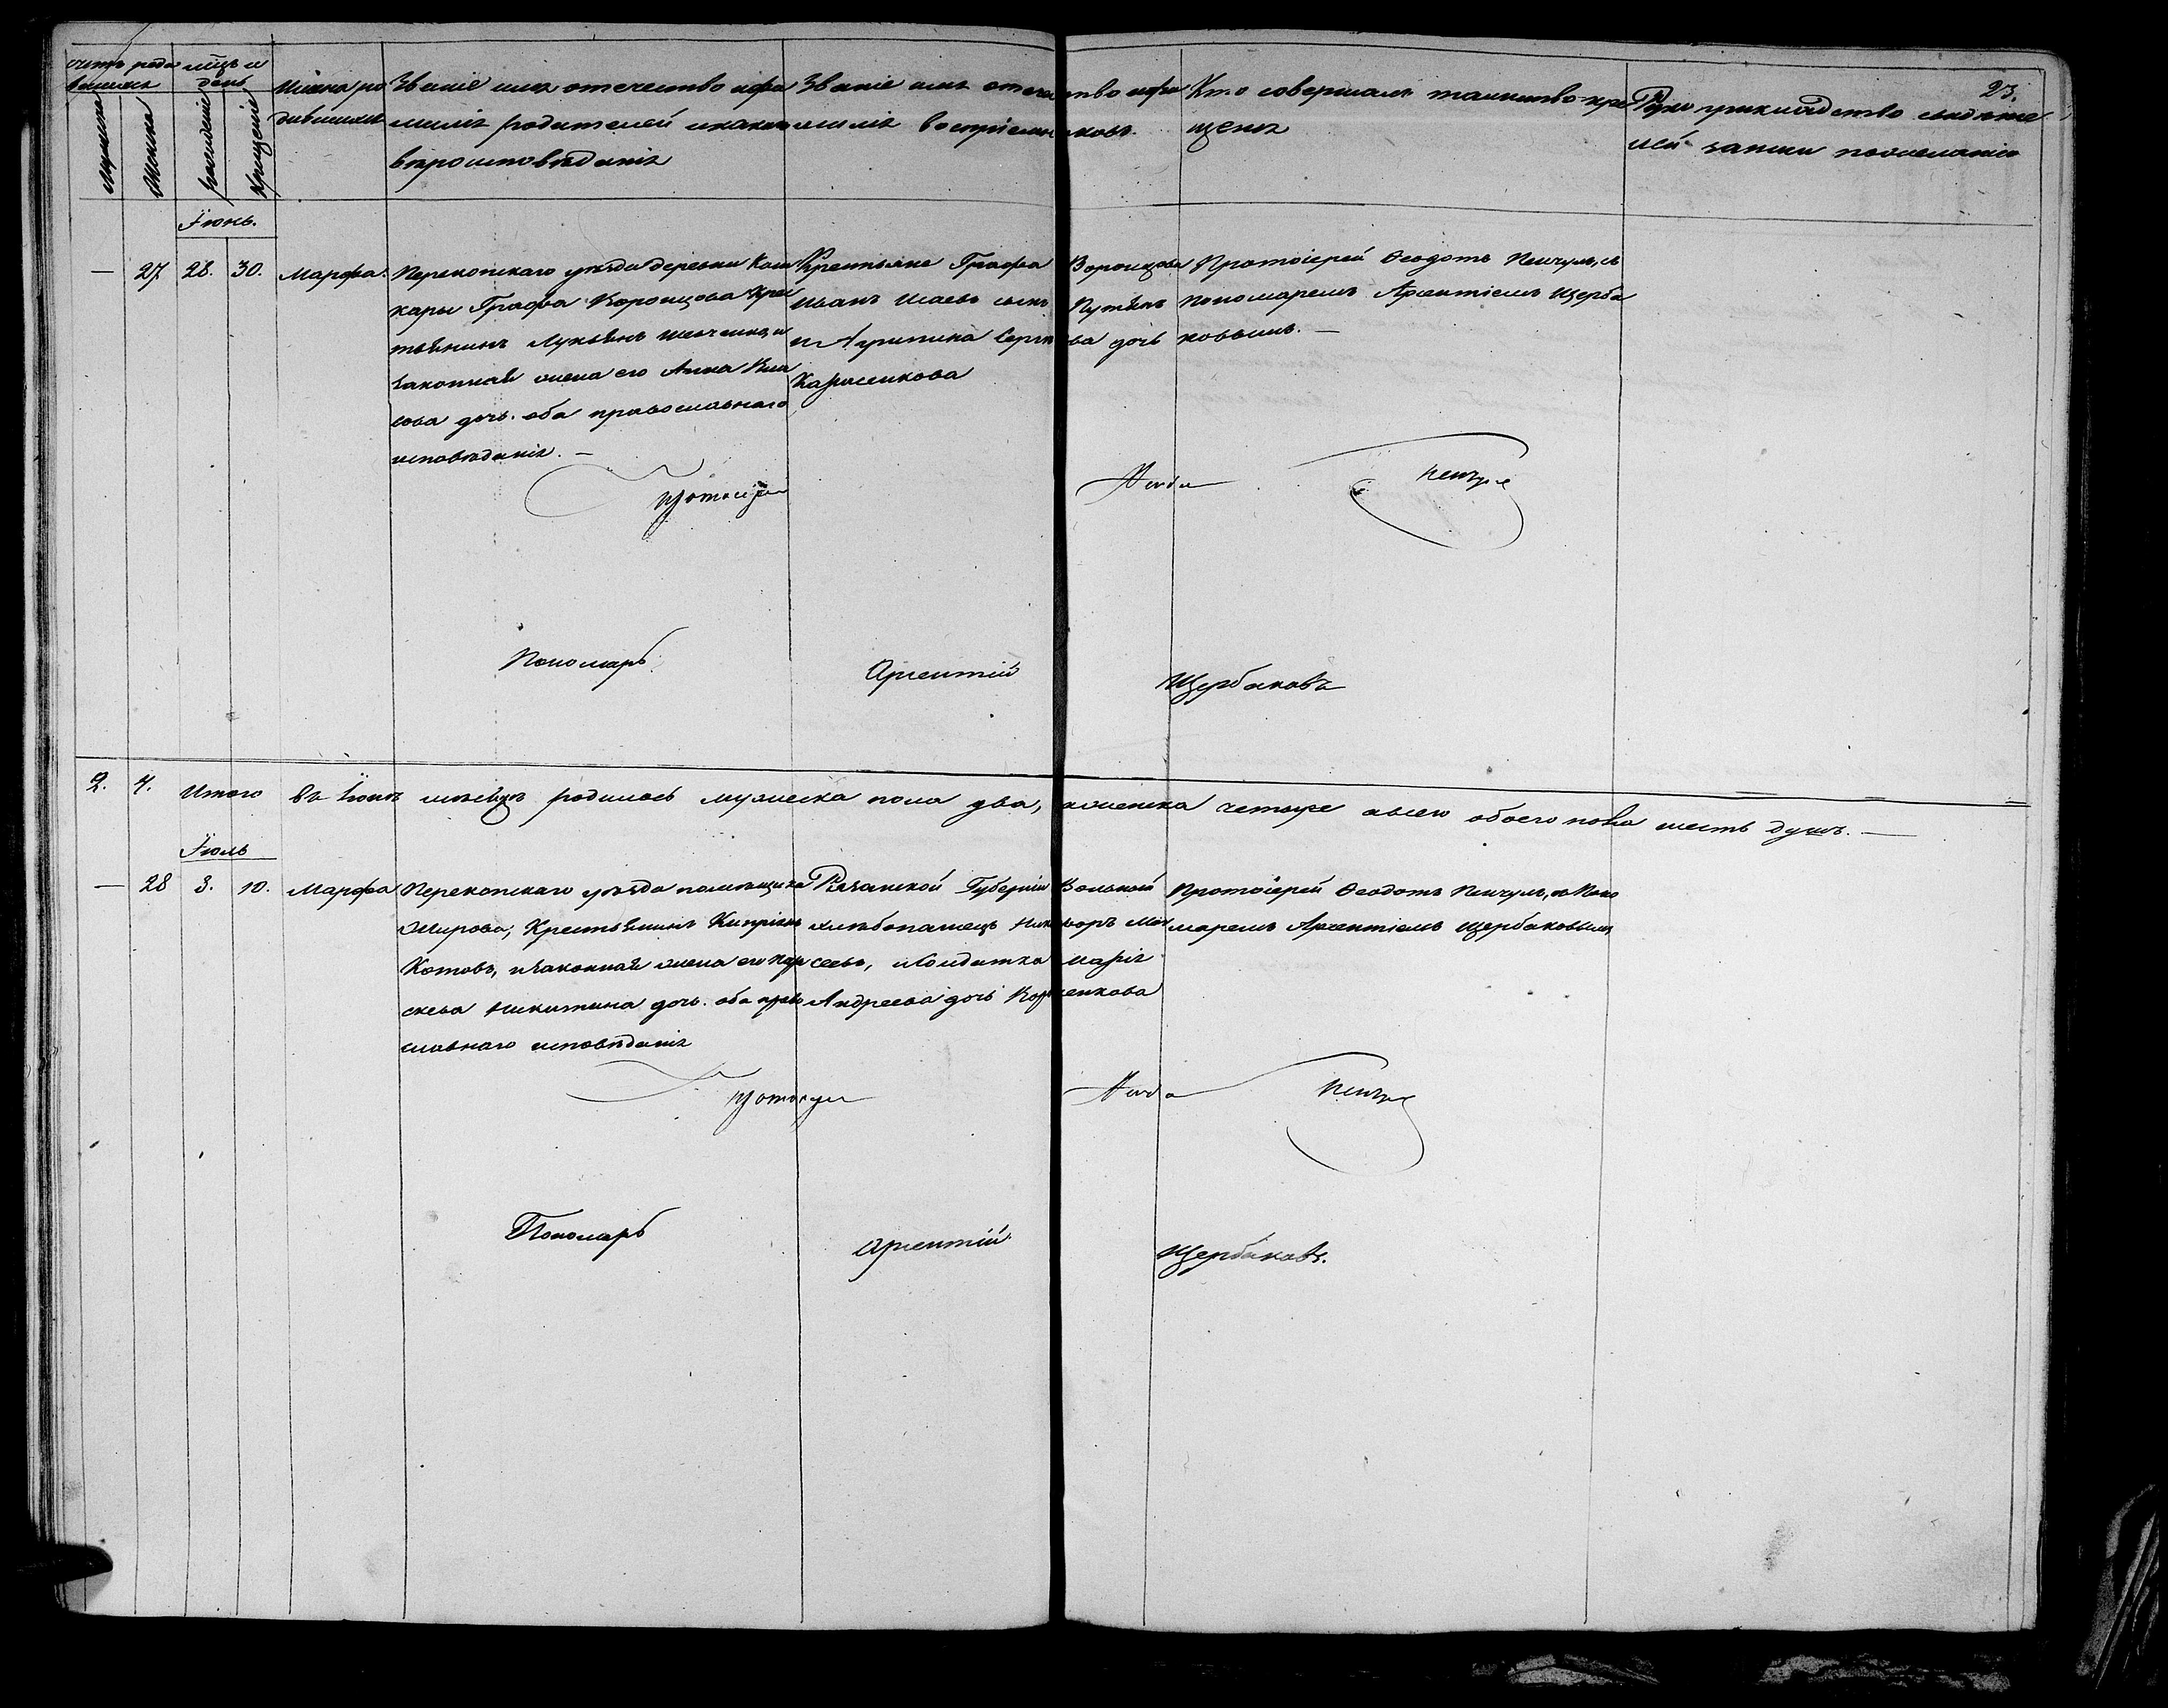 23.
счетъ родившихся
мѣсяцъ и день
Мужеска
Женска
рожденіе
Крещеніе
Имяна родившихся
Званіе имя отечество и фамилія родителей и какого вѣроисповѣданія
Званіе имя отечество и фамилія воспріемниковъ.
Кто совершалъ таинство крещенія
Рукоприкладство свидѣтелей записи по желанію
Іюнь.
— 27 28. 30. Марфа.
Перекопскаго уѣзда деревни
кары Графа Воронцова Крес
тьянинъ Лукьянъ и
законная жена его Анна Вла
сова дочь. оба православнаго
исповѣданія. —
Крестьяне Графа Воронцова
Иванъ Исаевъ сынъ
и Агрипина дочь
Протоіерей Ѳеодотъ Пенчулъ, съ
пономаремъ Арсентіемъ Щерба
ковымъ. —
Протоіерей Ѳеодотъ Пенчулъ
Пономарь Арсентій Щербаковъ
2. 4. Итого въ Іюнѣ мѣсяцѣ родилось мужеска пола два, женска четыре а всего обоего пола шесть душъ. —
Іюль
— 28 3. 10. Марфа
Перекопскаго уѣзда помѣщика
Крестьянинъ Кипріянъ
Котовъ, и законная жена его Пара
скева Никитина дочь. оба право
славнаго исповѣданія
Рязанской Губерніи Вольный
хлѣбопашецъ Никифоръ
и Солдатка Марія
Андреева дочь
Протоіерей Ѳеодотъ Пенчулъ, съ Поно
маремъ Арсентіемъ Щербаковымъ
Протоіерей Ѳеодотъ Пенчулъ
Пономарь Арсентій Щербаковъ.